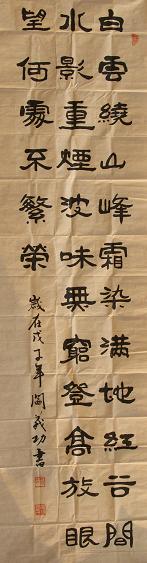 白雲繞山峰霜染满地紅谷間
水影重煙波味無窮登高放眼
望何處不繁榮
歲在戊子年閻義功書